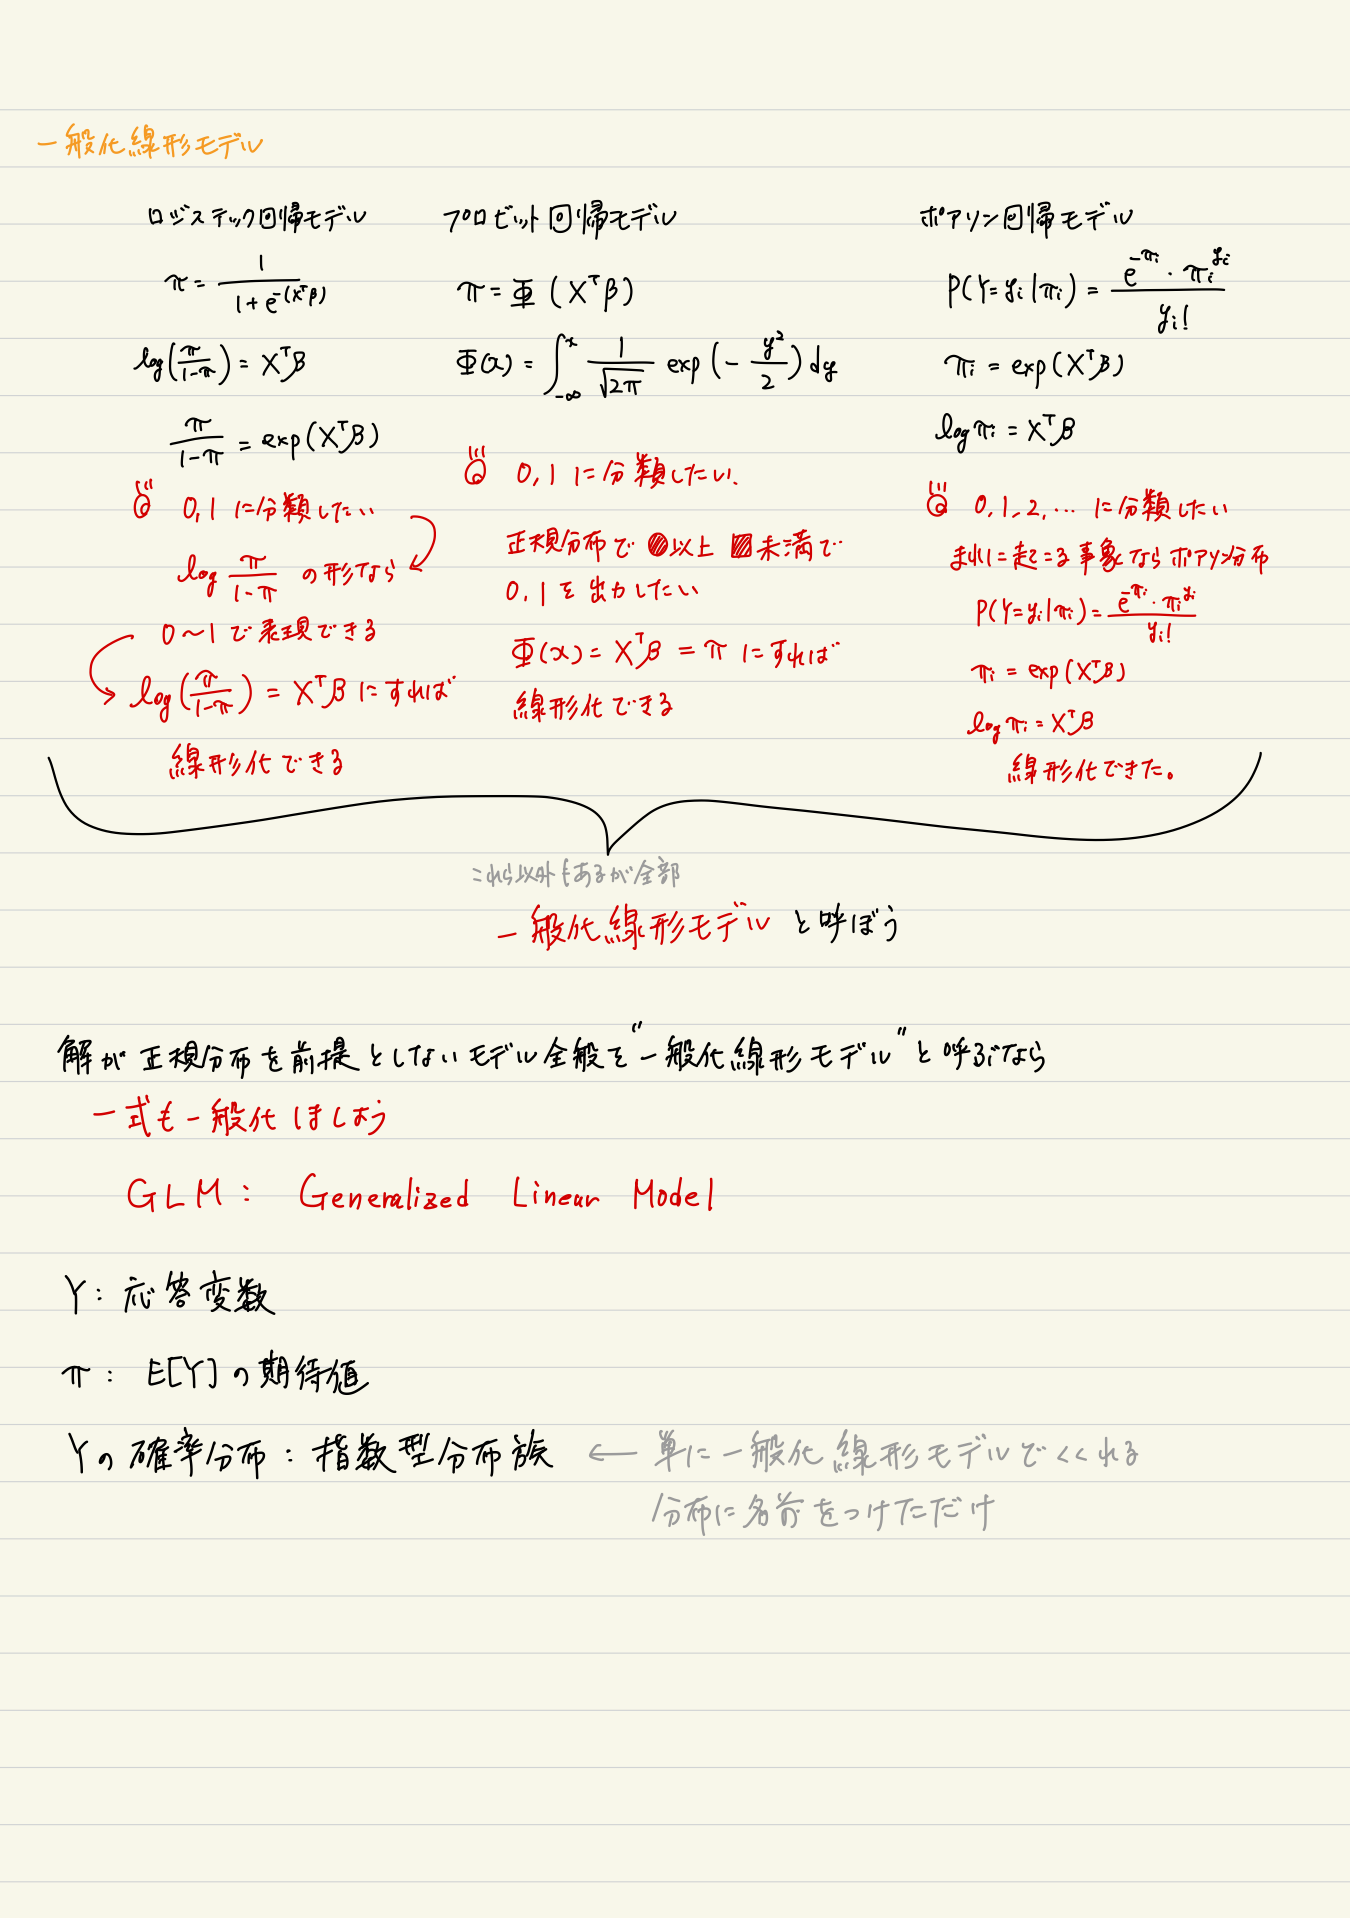 一般化線形モデル
ロジステック回帰モデル
π = 1 / (1 + e^{-(X^Tβ)})
log(π/(1-π)) = X^Tβ
π/(1-π) = exp(X^Tβ)
0,1 に分類したい
log π/(1-π) の形なら
0〜1で表現できる
log(π/(1-π)) = X^Tβ にすれば
線形化できる
プロビット回帰モデル
π = Φ(X^Tβ)
Φ(x) = ∫_{-∞}^{x} 1/√(2π) exp(-y²/2) dy
0,1 に分類したい.
正規分布で 以上 未満で
0,1を出力したい
Φ(x) = X^Tβ = π にすれば
線形化できる
ポアソン回帰モデル
P(Y=y_i|π_i) = e^{-π_i}・π_i^{y_i} / y_i!
π_i = exp(X^Tβ)
log π_i = X^Tβ
0,1,2,… に分類したい
まれに起こる事象ならポアソン分布
P(Y=y_i|π_i) = e^{-π_i}・π_i^{y_i} / y_i!
π_i = exp(X^Tβ)
log π_i = X^Tβ
線形化できた。
これら以外もあるが全部
一般化線形モデル と呼ぼう
解が正規分布を前提としないモデル全般を"一般化線形モデル"と呼ぶなら
一式も一般化しましょう
GLM: Generalized Linear Model
Y: 応答変数
π: E[Y]の期待値
Yの確率分布: 指数型分布族 ← 単に一般化線形モデルでくくれる
分布に名前をつけただけ